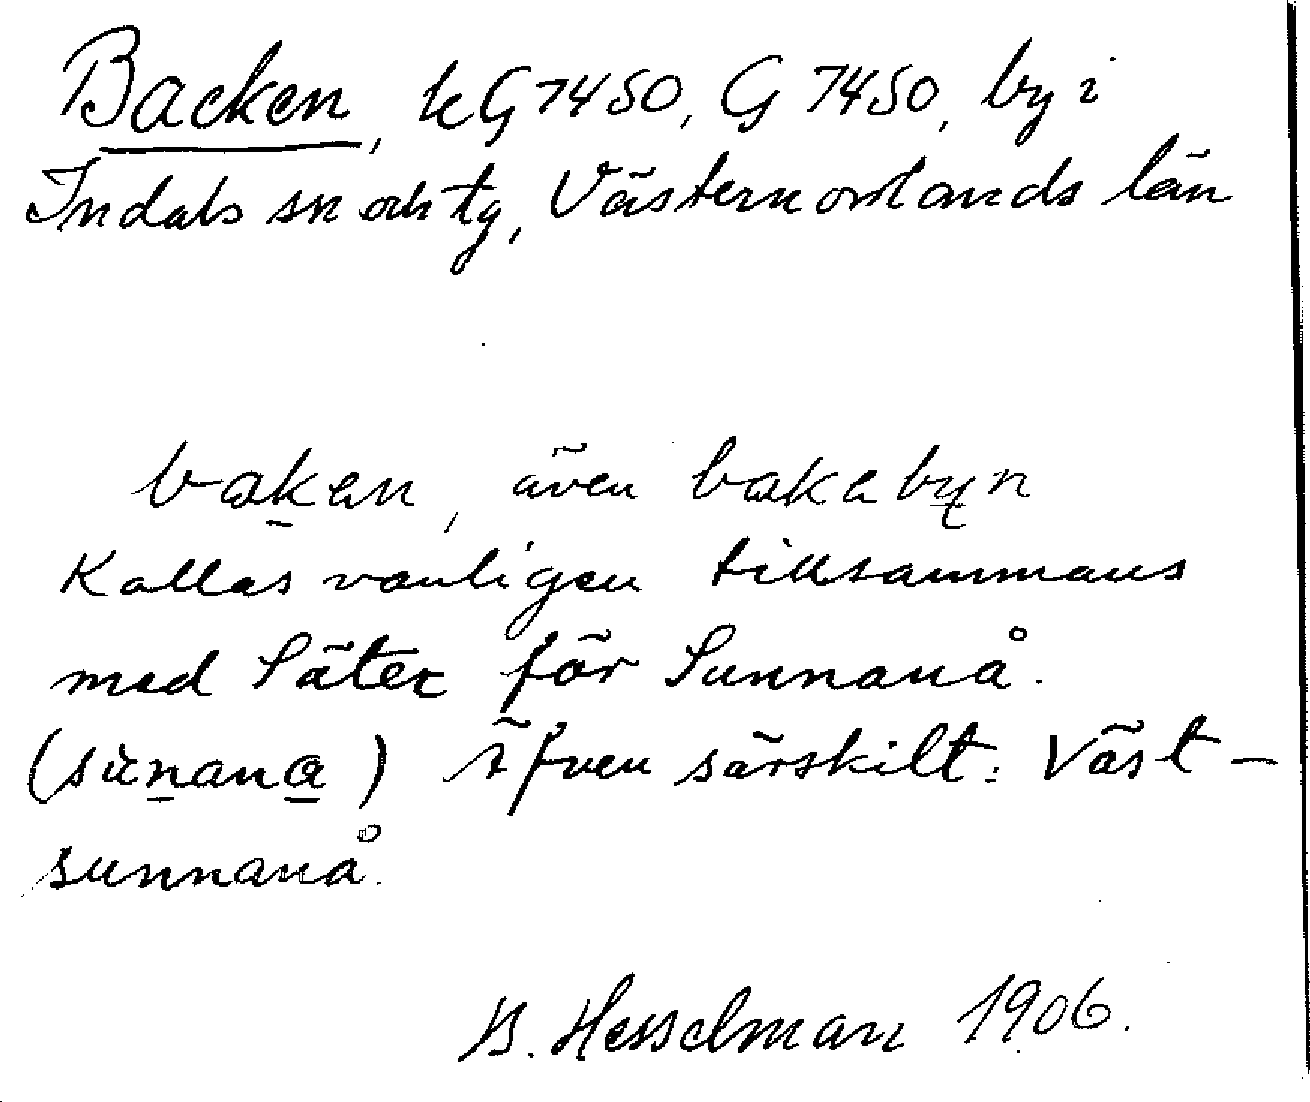 Backen, kG 7450, G 7450, by i
Indals sn och tg, Västernorrlands län
baken, även bakabyn
Kallas vanligen tillsammans
med Säter för Sunnanå.
(sùnana) Äfven särskilt: Väst-
sunnanå.
B. Hesselman 1906.